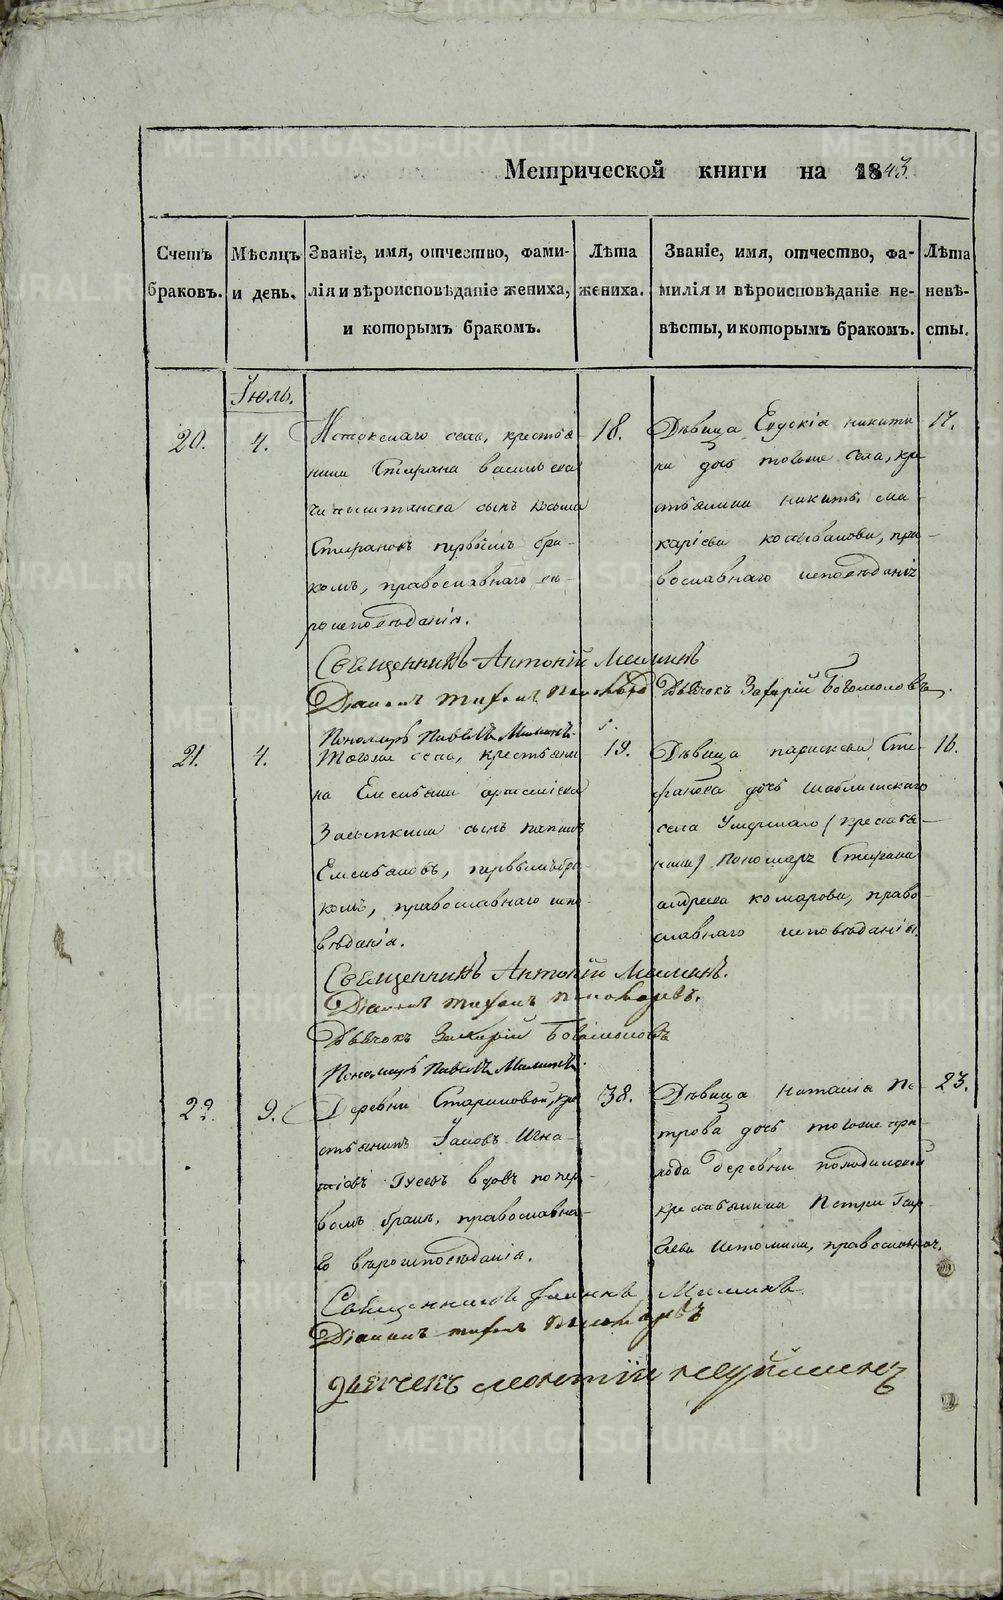 Метрической книги на 1843.
Счетъ браковъ.
Мѣсяцъ и день.
Званіе, имя, отчество, фами-
лія и вѣроисповѣданіе жениха,
и которымъ бракомъ.
Лѣта жениха.
Званіе, имя, отчество, фа-
милія и вѣроисповѣданіе не-
вѣсты, и которымъ бракомъ.
Лѣта невѣ-
сты.
Іюль.
20.
4.
села, крестья
нина Стефана
сынъ Косьма
Стефановъ первымъ бра-
комъ, православнаго вѣ-
роисповѣданія.
18.
Дѣвица Евдокія Никити
на дочь тогоже села, кре
стьянина Никиты Ма-
каріева, пра-
вославнаго исповѣданія
17.
Священникъ Антоній Маминъ
Діаконъ Тихонъ
Дьячокъ Захарій Богомоловъ.
Пономарь Павелъ Маминъ.
21.
4.
Тогоже села, крестьяни
на Емельяна
сынъ
Емельяновъ, первымъ бра-
комъ, православнаго испо-
вѣданія.
19.
Дѣвица Параскева Сте-
фанова дочь
села умершаго
Пономаря Стефана
Андреева Комарова, право-
славнаго исповѣданія.
16.
Священникъ Антоній Маминъ.
Діаконъ Тихонъ
Дьячокъ Захарій Богомоловъ
Пономарь Павелъ Маминъ.
22.
9.
Деревни Стариковой, кре
стьянинъ Іаковъ Игна-
тіевъ Гусевъ вдовъ по пер-
вомъ бракѣ, православна-
го вѣроисповѣданія.
38.
Дѣвица Наталія Пе-
трова дочь тогоже при-
хода деревни
крестьянина Петра
Истомина, православнаго.
23.
Священникъ Іоаннъ Маминъ
Діаконъ Тихонъ
Дьячекъ
METRIKI.GASO-URAL.RU